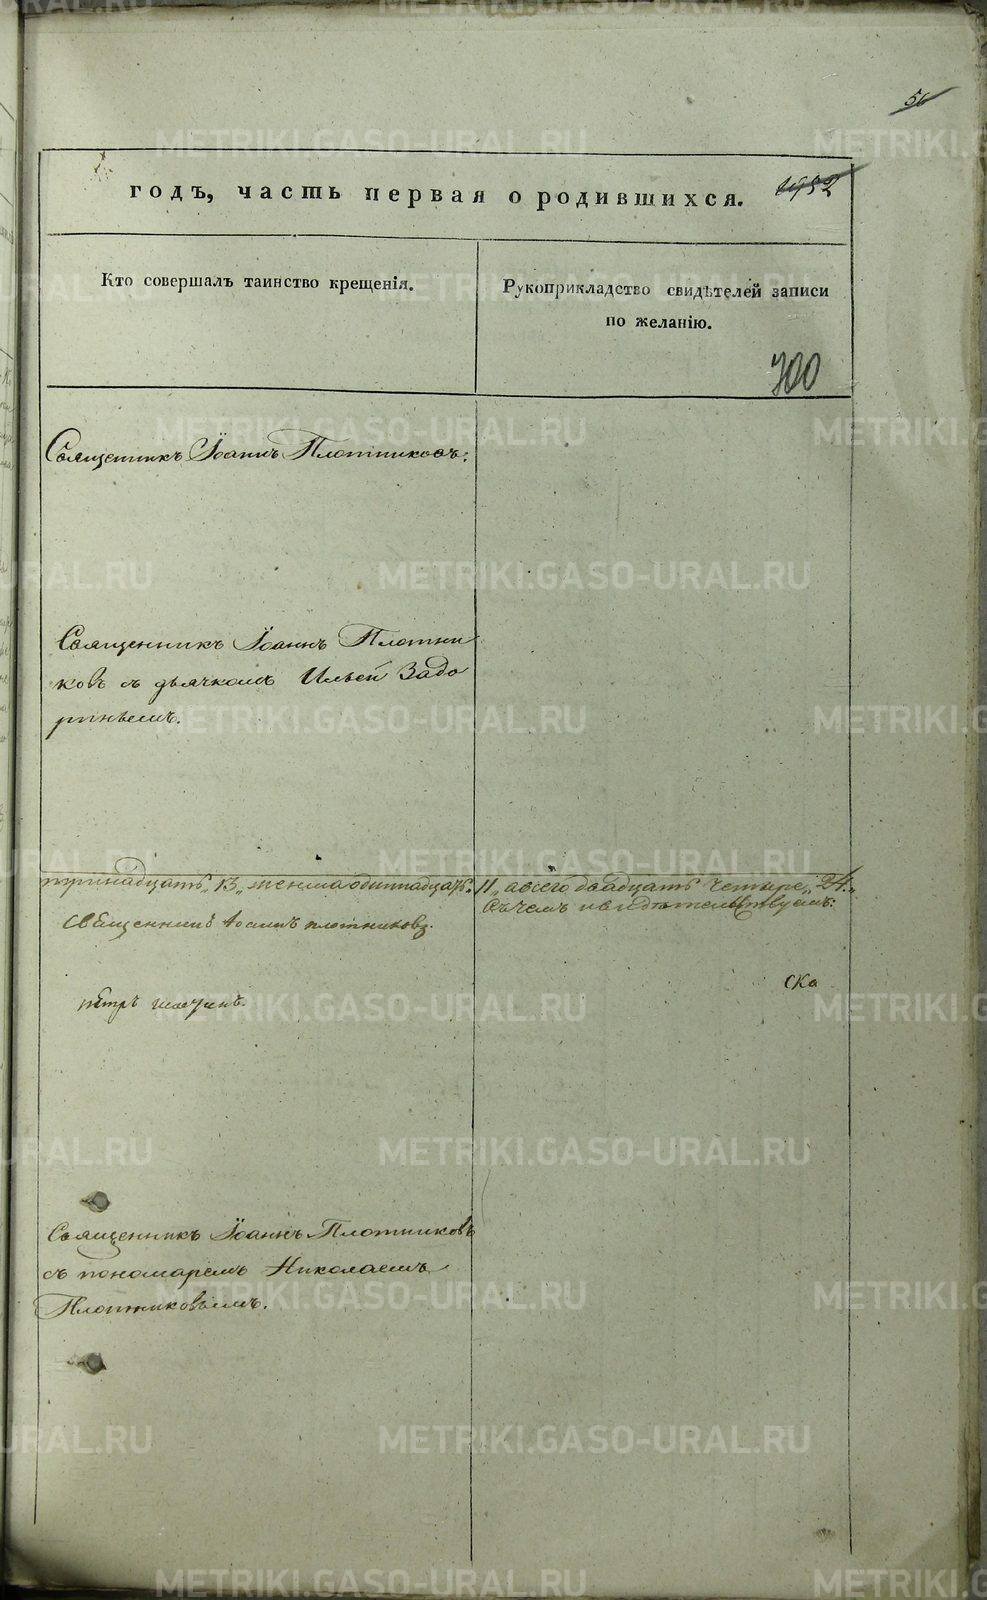 56
годъ, часть первая о родившихся. 1952
Кто совершалъ таинство крещенія.
Рукоприкладство свидѣтелей записи
по желанію.
700
Священникъ Іоаннъ Плотниковъ.
Священникъ Іоаннъ Плотни
ковъ съ дьячкомъ Ильей Задо
ринымъ.
тринадцать „13„ женска одиннадцать „11„ а всего двадцать четыре „24„
въ чемъ и свидѣтельствуемъ:
священникъ Іоаннъ Плотниковъ.
ска
петръ
Священникъ Іоаннъ Плотниковъ
съ пономаремъ Николаемъ
Плотниковымъ.
METRIKI.GASO-URAL.RU